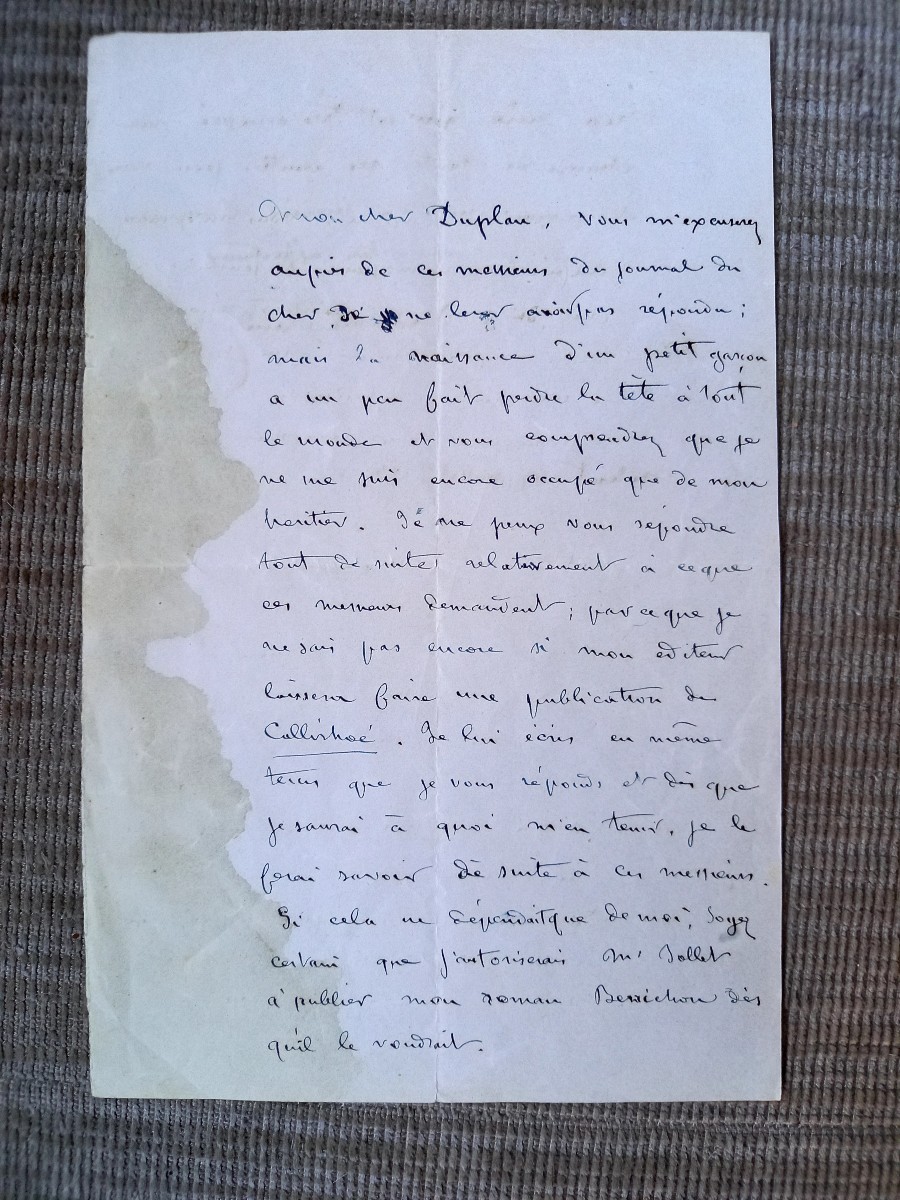 Or mon cher Duplan, vous m'excuserez
auprès de ces messieurs du journal du
cher de ne leur avoir pas répondu ;
mais la naissance d'un petit garçon
a un peu fait perdre la tête à tout
le monde et vous comprendrez que je
ne me suis encore occupé que de mon
heritier. Je ne peux vous répondre
tout de suite relativement à ce que
ces messieurs demandent ; parce que je
ne sais pas encore si mon éditeur
laissera faire une publication de
Callirhoé. Je lui écris en même
tems que je vous réponds et dès que
je saurai à quoi m'en tenir, je le
ferai savoir de suite à ces messieurs.
Si cela ne dépendait que de moi, soyez
certain que j'autoriserais Mr
à publier mon roman Berrichon dès
qu'il le voudrait.